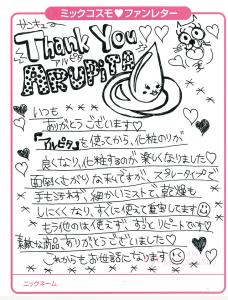 ミックコスモ♥ファンレター
サンキュー
Thank You
アルピタ
ARUPITA
いつも
ありがとうございます♡
『アルピタ』を使ってから、化粧のりが
良くなり、化粧するのが楽しくなりました♡
面倒くさがりな私ですが、スプレータイプで
手もよごれず、細かいミストで、乾燥も
しにくくなり、すぐに使えて重宝してます
もう他のは使えず、ずっとリピートです☆
素敵な商品、ありがとうございました♡
これからもお世話になります
ニックネーム